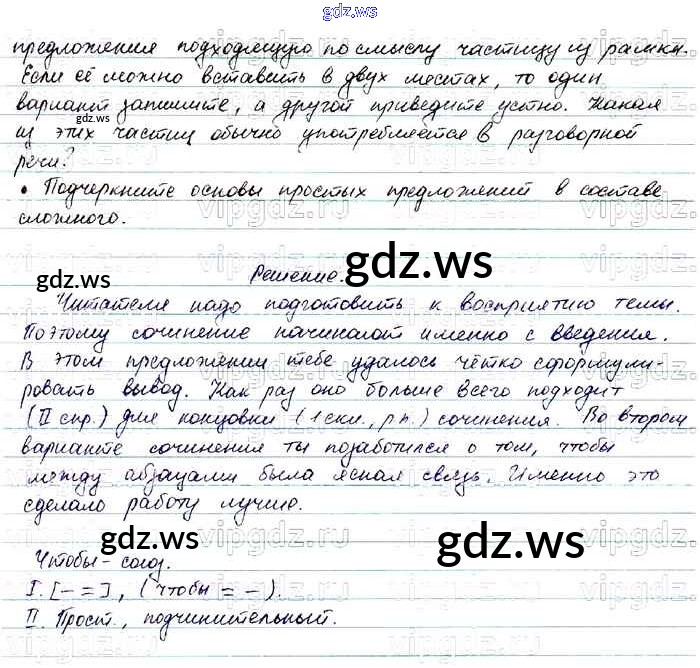 gdz.ws
предложения подходящую по смыслу частицу из рамки.
Если её можно вставить в двух местах, то один
вариант запишите, а другой приведите устно. Какая
gdz.ws
из этих частиц обычно употребляется в разговорной
речи?
• Подчеркните основы простых предложений в составе
сложного.
gdz.ws
gdz.ws
Решение.
Читателя надо подготовить к восприятию темы.
Поэтому сочинение начинают именно с введения.
В этом предложении тебе удалось чётко сформули-
ровать вывод. Как раз оно больше всего подходит
(II спр.) для концовки (1 скл., р.п.) сочинения. Во втором
варианте сочинения ты позаботился о том, чтобы
между абзацами была ясная связь. Именно это
сделало работу лучше.
gdz.ws
gdz.ws
Чтобы - союз.
I. [- =], (чтобы = -).
II. Прост., подчинительный.